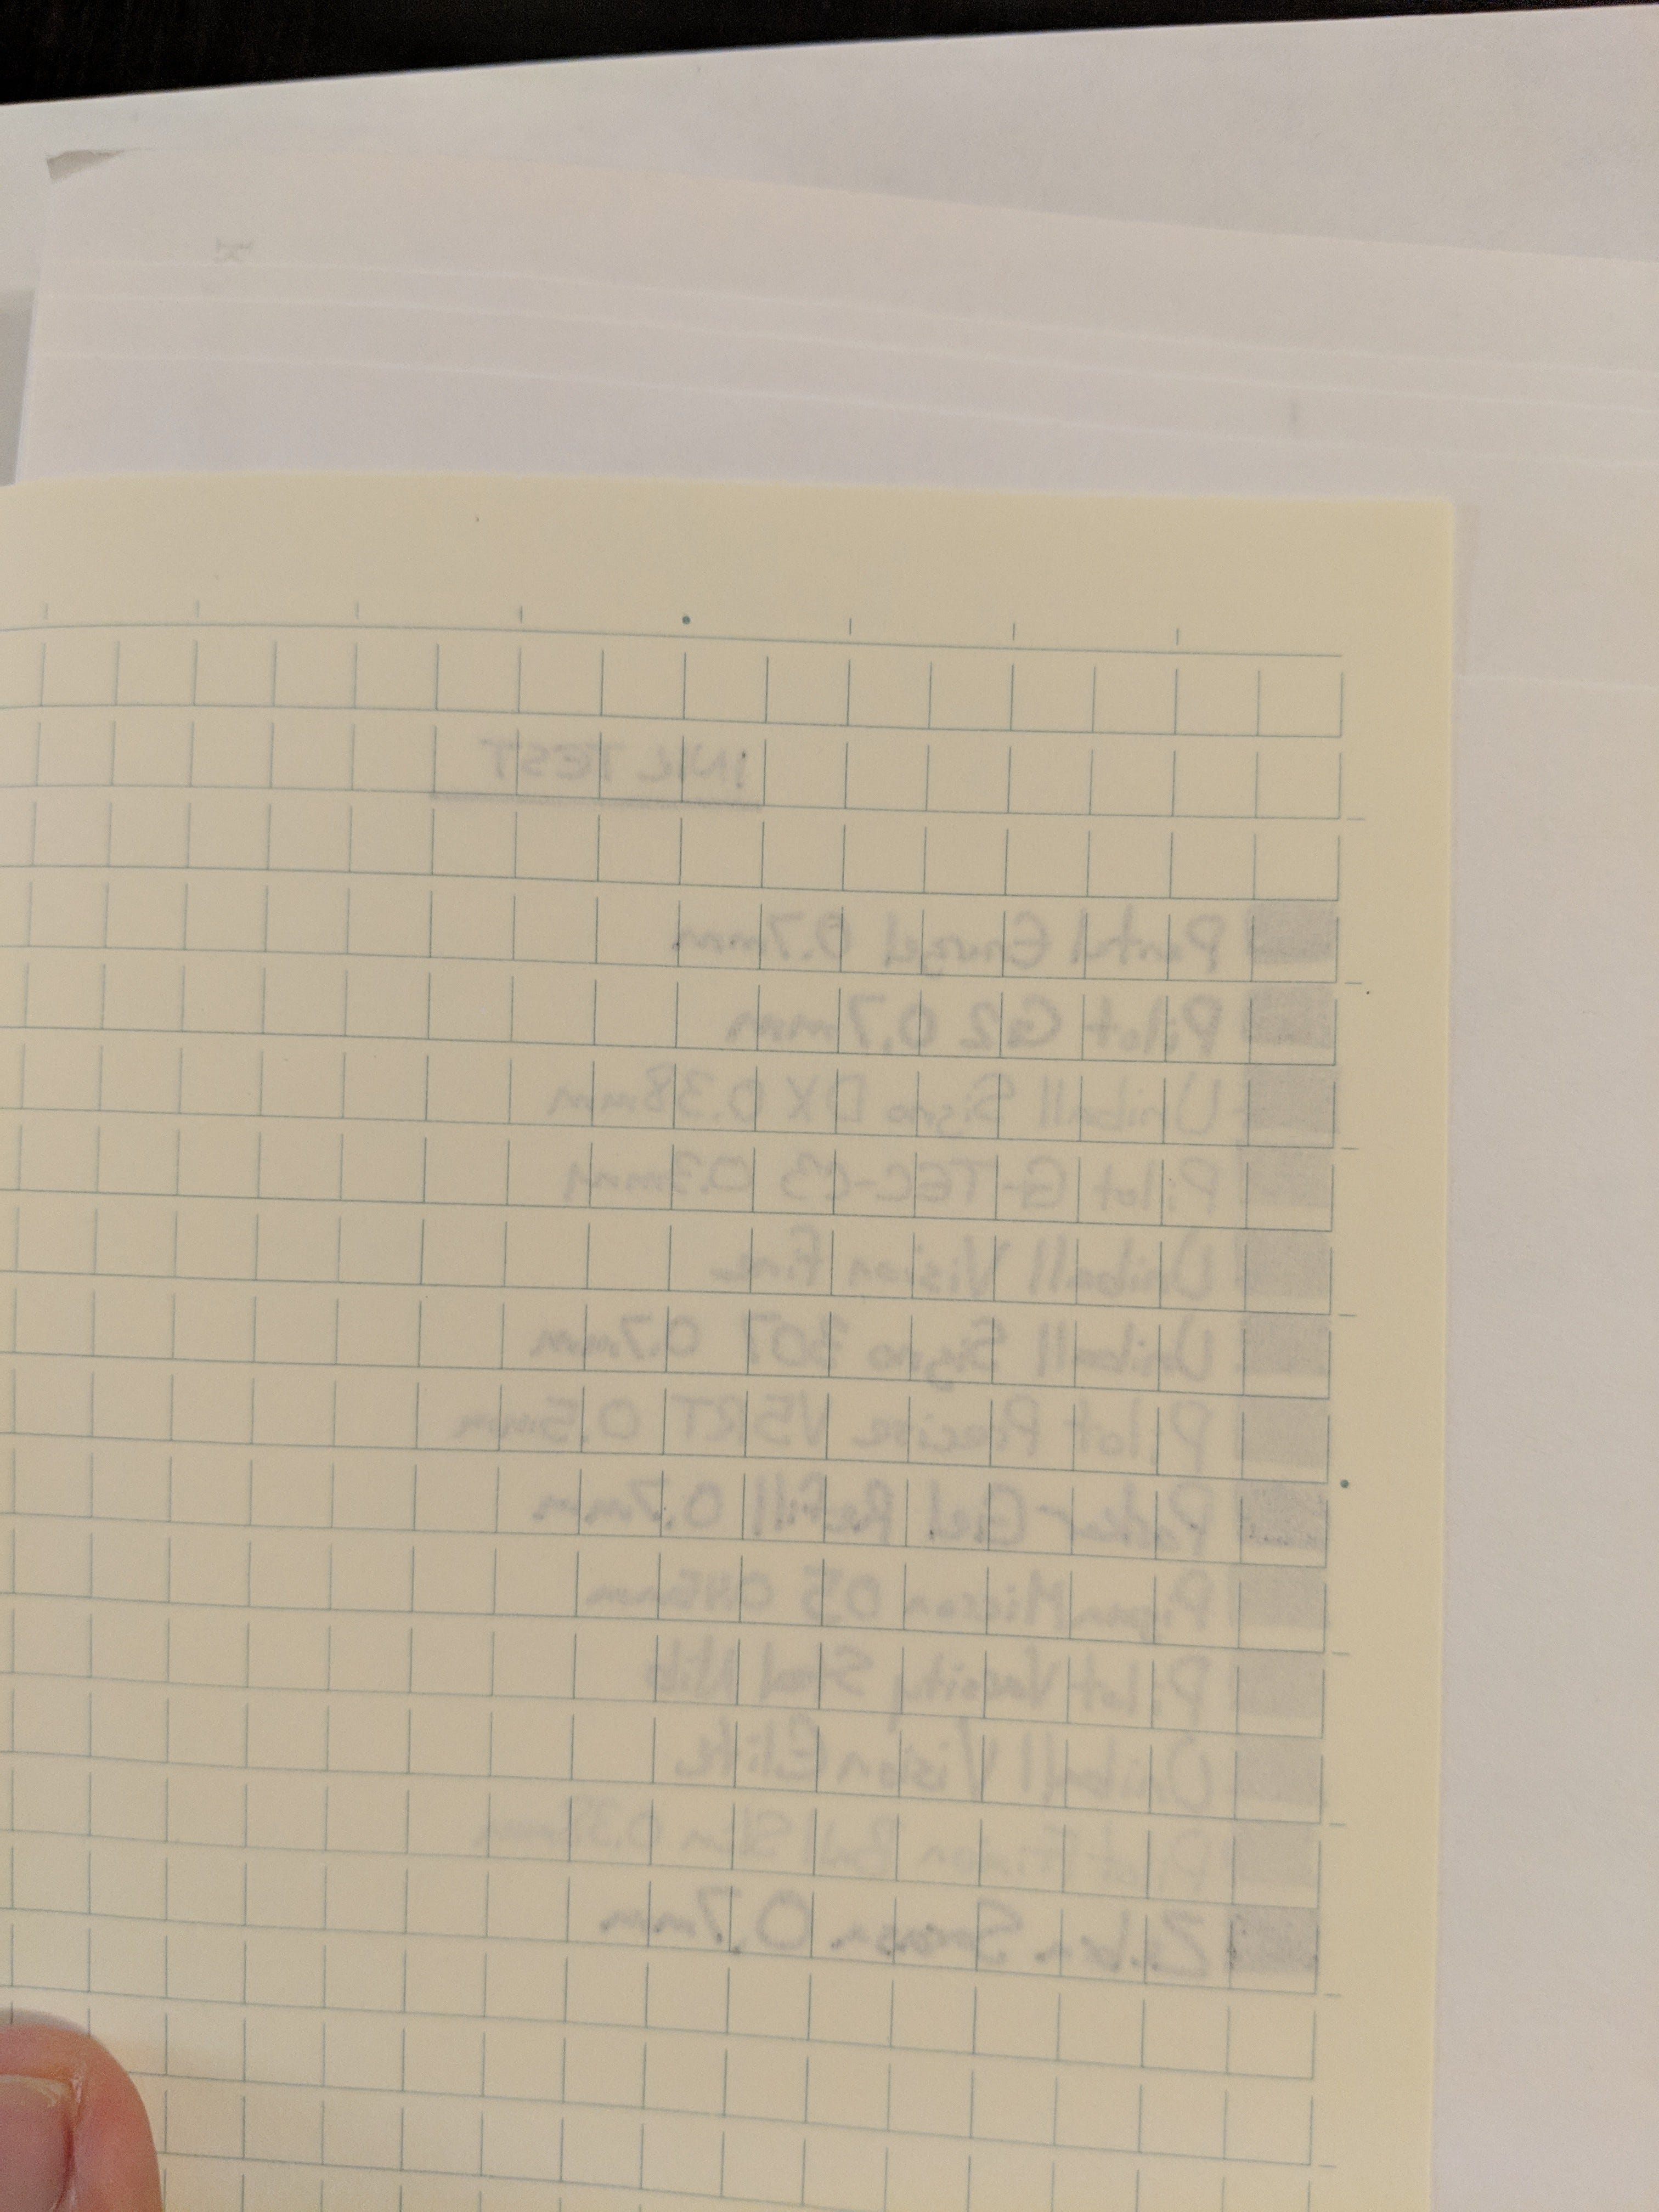 INK TEST
Pentel Energel 0.7mm
Pilot G2 0.7mm
Uniball Signo DX 0.38mm
Pilot G-TEC-C3 0.3mm
Uniball Vision Fine
Uniball Signo 307 0.7mm
Pilot Precise V5 RT 0.5mm
Parker Gel Refill 0.7mm
Pigma Micron 05 0.45mm
Pilot Varsity Steel Nib
Uniball Vision Elite
Pilot Frixion Ball Slim 0.38mm
Zebra Sarasa 0.7mm